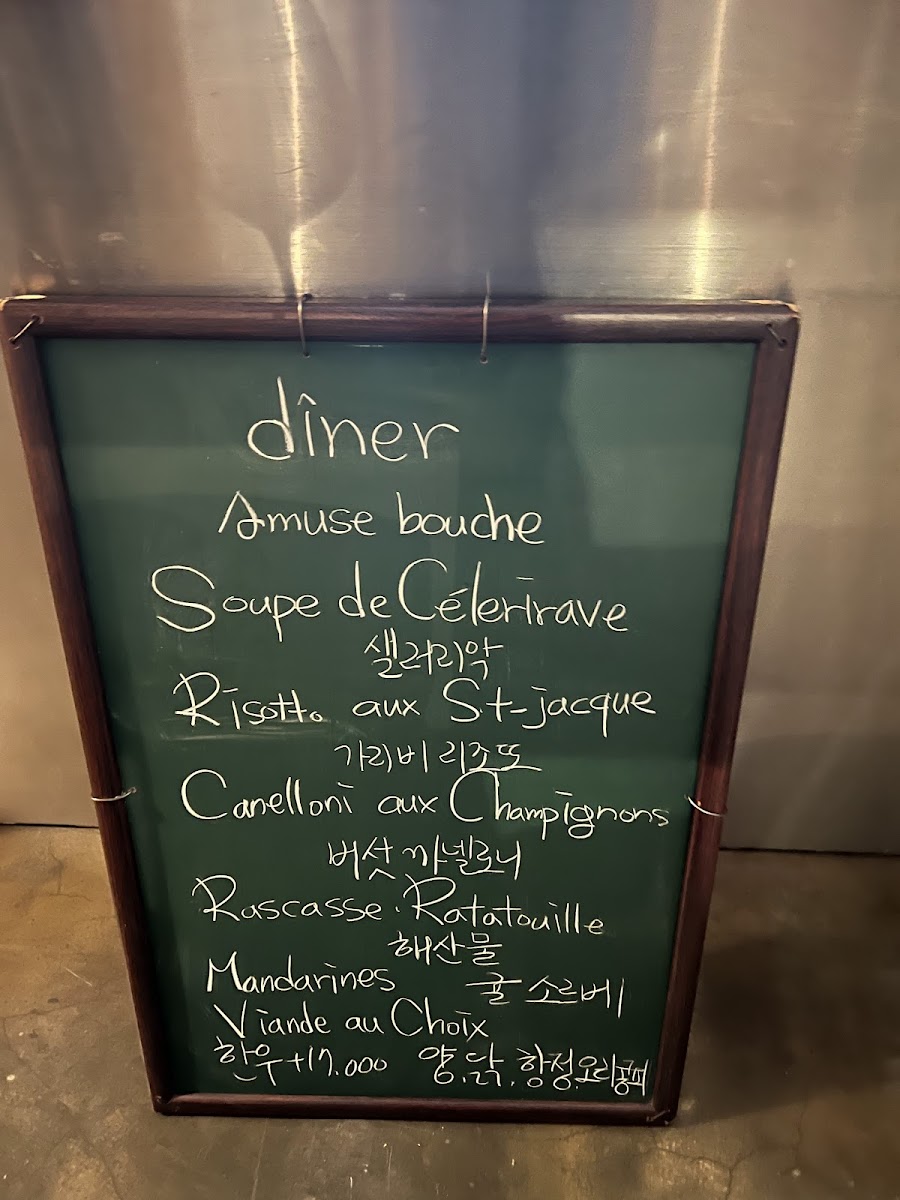 dîner
Amuse bouche
Soupe de Célerirave
샐러리악
Risotto aux St-jacque
가리비 리조또
Canelloni aux Champignons
버섯 까넬로니
Rascasse. Ratatouille
해산물
Mandarines 귤 소르베
Viande au Choix
한우+17.000 양.닭.항정.오리콩피